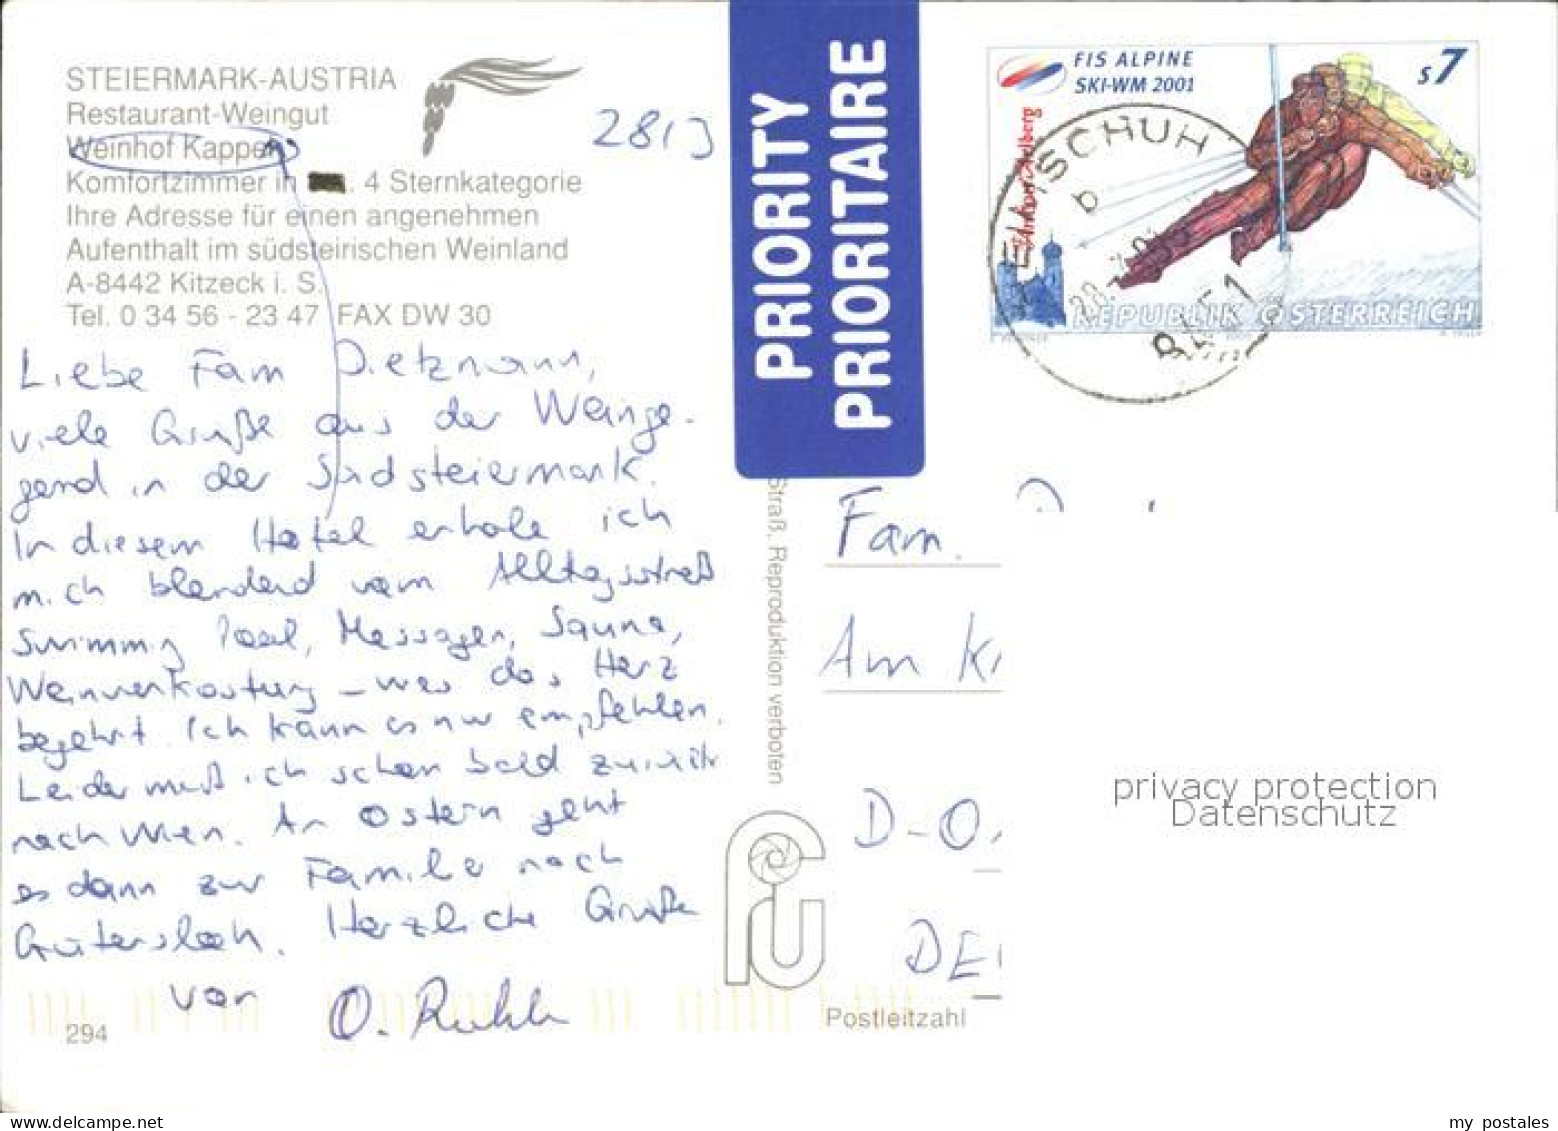 STEIERMARK-AUSTRIA
Restaurant-Weingut
Weinhof Kappel
Komfortzimmer in . 4 Sternkategorie
Ihre Adresse für einen angenehmen
Aufenthalt im südsteirischen Weinland
A-8442 Kitzeck i. S.
Tel. 0 34 56 - 23 47 FAX DW 30
28/3
Liebe Fam Dietzmann,
viele Grüße aus der Weinge-
gend in der Südsteiermark.
In diesem Hotel erhole ich
mich blendend vom Alltagsstreß
Swimming Pool, Massagen, Sauna,
Weinverkostung – was das Herz
begehrt. Ich kann es nur empfehlen.
Leider muß ich schon bald zurück
nach Wien. An Ostern geht
es dann zur Familie nach
Gütersloh. Herzliche Grüße
von O.
294
PRIORITY
PRIORITAIRE
Straß, Reproduktion verboten
FIS ALPINE
SKI-WM 2001
s7
St. Anton am Arlberg
REPUBLIK ÖSTERREICH
SCHUH
b
8451
Fam.
Am
D-O
DE
Postleitzahl
privacy protection
Datenschutz
my postales